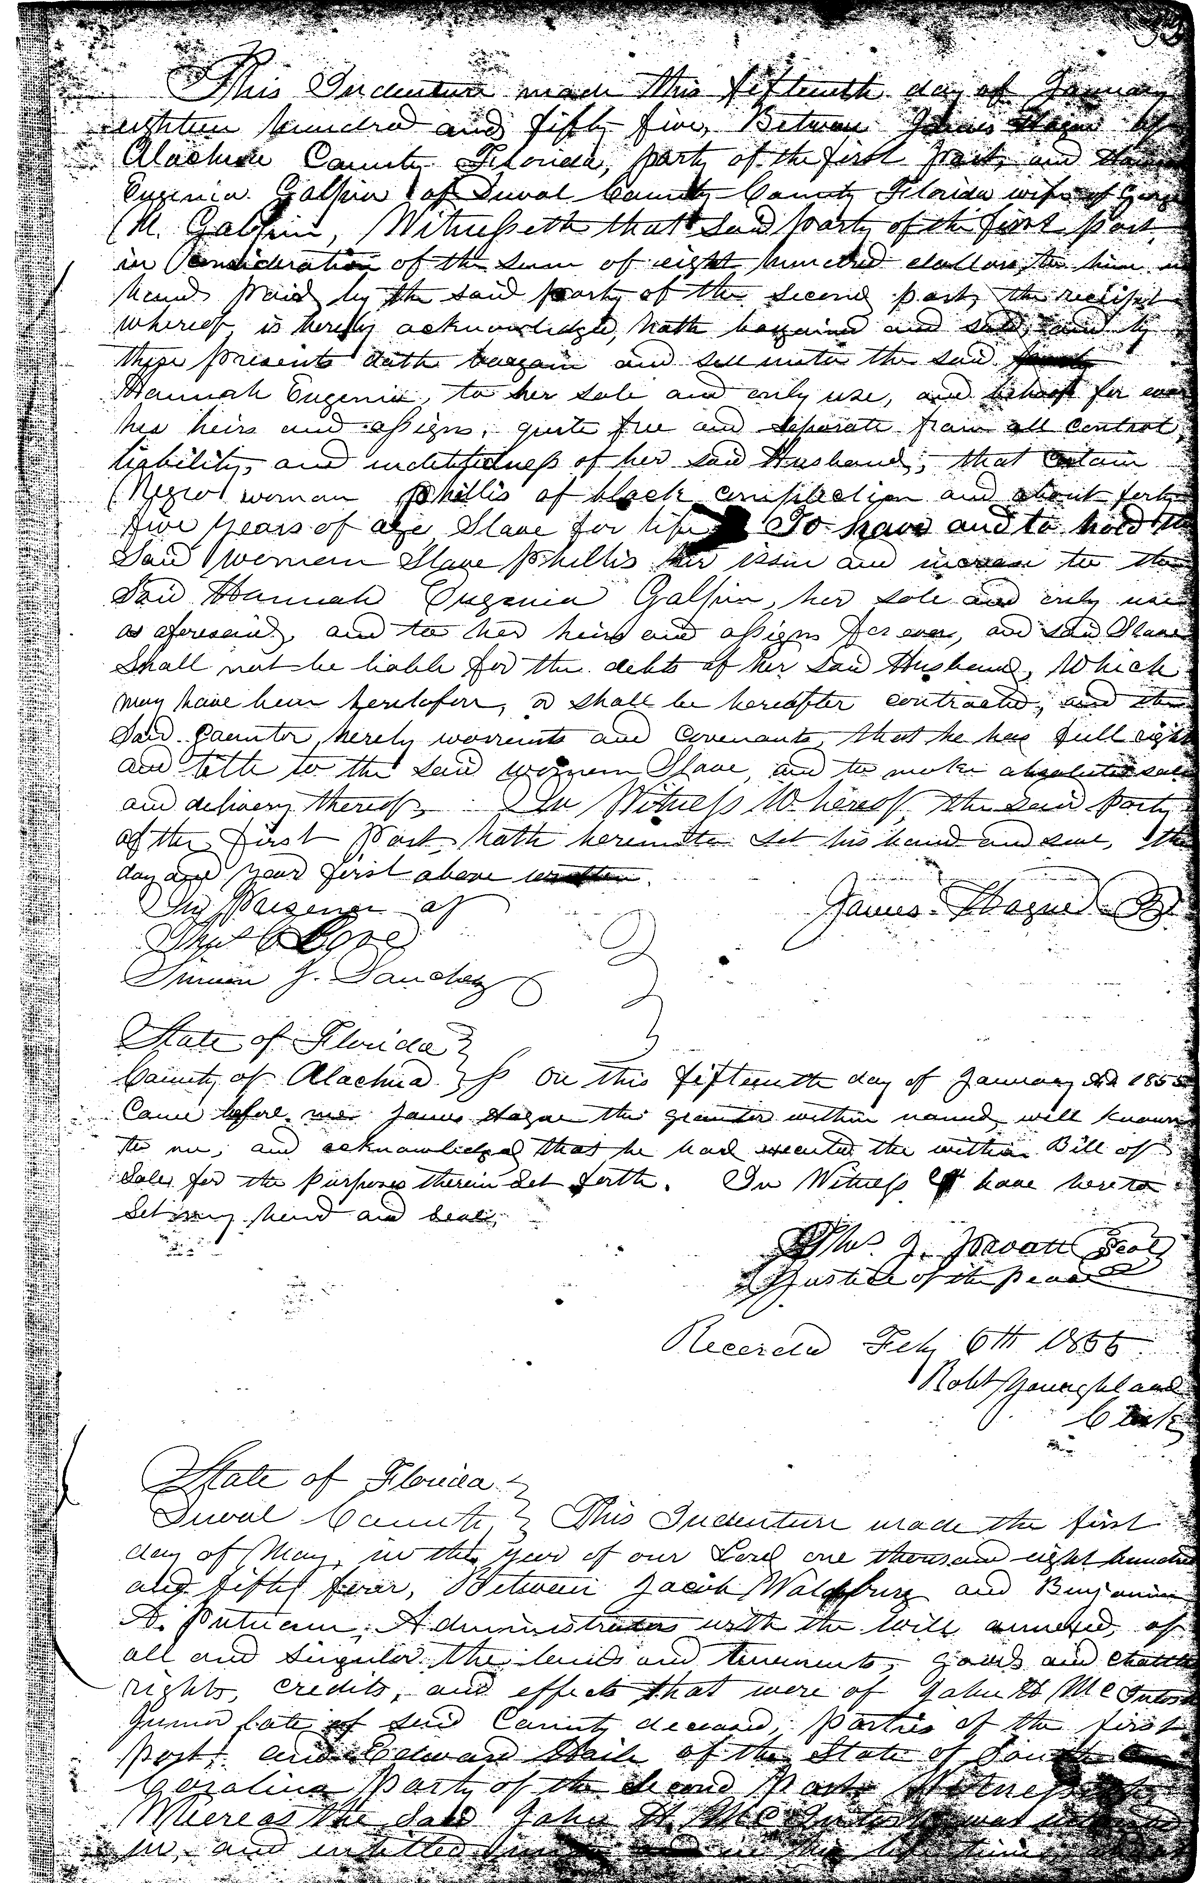 This Indenture made this fifteenth day of January
eighteen hundred and fifty five, Between James Hague of
Alachua County Florida, party of the first part, and Hannah
Eugenia Galpin of Duval County County Florida wife of George
M. Galpin, Witnesseth that said party of the first part,
in Consideration of the sum of eight hundred dollars, to him in
hand paid by the said party of the second part, the receipt
whereof, is hereby acknowledged, hath bargained and sold, and by
these presents doth bargain and sell unto the said
Hannah Eugenia, to her sole and only use, and behoof for ever
her heirs and assigns, quite free and separate from all control,
liability, and indebtedness of her said Husband, that certain
Negro woman Phillis of black complection and about forty
five years of age Slave for life To have and to hold the
Said woman Slave Phillis her issue and increase to the
Said Hannah Eugenia Galpin, her sole and only use
as aforesaid, and to her heirs and assigns for ever, and said Slave
Shall not be liable for the debts of her said Husband, Which
may have been heretofore, or shall be hereafter contracted, and the
Said Grantor, hereby warrants and covenants, that he has full right
and title to the said woman Slave, and to make absolute sale
and delivery thereof, In Witness Whereof, the Said Party
of the first Part, hath hereunto set his hand and seal, the
day and year first above written.
In presence of James Hague
Thos C Love
Simeon J. Sanchez
State of Florida
County of Alachua } SS On this fifteenth day of January AD 1855
Came before me James Hague the grantor within named, well known
to me, and acknowledged that he had executed the within Bill of
Sale, for the purposes therein Set forth. In Witness I have hereto
Set my hand and Seal,
Thos. J. Seal
Justice of the peace
Recorded Feby 6th 1855
Robt Youngblood
Clerk
State of Florida
Duval County } This Indenture made the first
day of May, in the year of our Lord one thousand eight hundred
and fifty four, Between Jacob Waldburg and Benjamin
A. Putnam, Administrators with the Will annexed, of
all and singular the lands and tenements, goods and chattels
rights, credits, and effects that were of John H McIntosh
Junior late of said County deceased, parties of the first
part, and Edward Haile of the State of South
Carolina Party of the second Part, Witnesseth
Whereas the said John H McIntosh was
in, and entitled in his life time